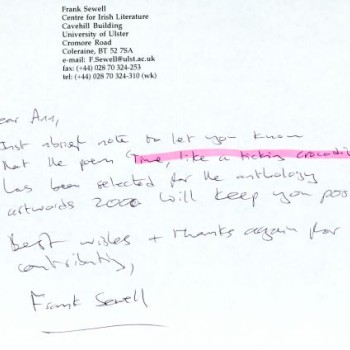 Frank Sewell
Centre for Irish Literature
Cavehill Building
University of Ulster
Cromore Road
Coleraine, BT 52 7SA
e-mail: F.Sewell@ulst.ac.uk
fax: (+44) 028 70 324-253
tel: (+44) 028 70 324-310 (wk)
ear Ann,
Just a brief note to let you know
that the poem 'Time, like a ticking crocodil
has been selected for the anthology
artwords 2000 Will keep you pos
Best wishes + thanks again for
contributing,
Frank Sewell